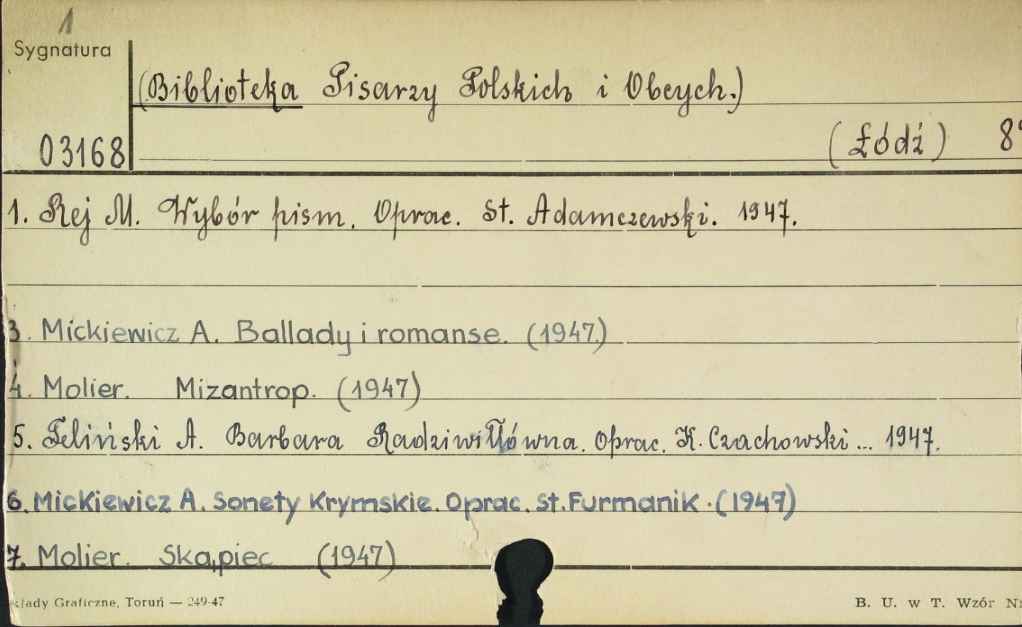 1
Sygnatura
(Biblioteka Pisarzy Polskich i Obcych.)
03168
(Łódź) 8°
1. Rej M. Wybór pism. Oprac. St. Adamczewski. 1947.
3. Mickiewicz A. Ballady i romanse. (1947.)
4. Molier. Mizantrop. (1947)
5. Feliński A. Barbara Radziwiłłówna. Oprac. K. Czachowski ... 1947.
6. Mickiewicz A. Sonety Krymskie. Oprac. St. Furmanik. (1947)
7. Molier. Skąpiec (1947)
kłady Graficzne, Toruń — 249-47
B. U. w T. Wzór